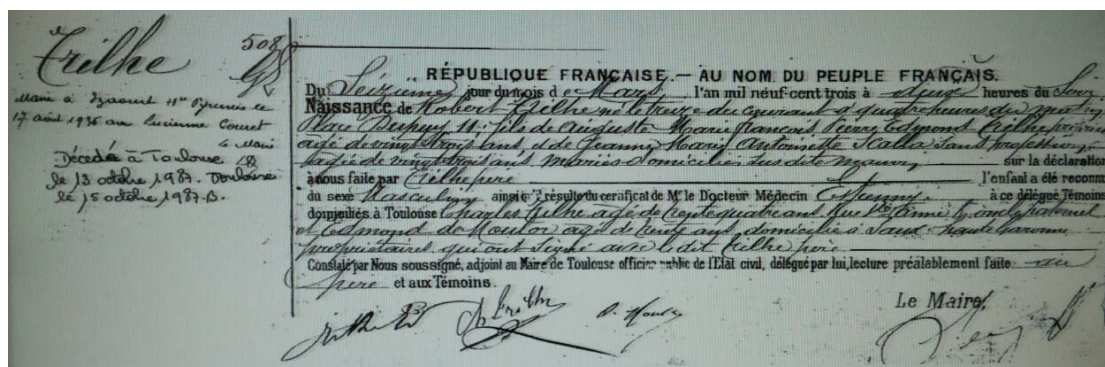 Trilhe
508
Marié à Izaourt Htes Pyrénées le
17 août 1936 avec Lucienne Couret
Le Maire
Décédé à Toulouse
le 13 octobre 1987. Toulouse
le 15 octobre 1987.
RÉPUBLIQUE FRANÇAISE. — AU NOM DU PEUPLE FRANÇAIS.
Du Seizième jour du mois de Mars, l'an mil neuf-cent trois à deux heures du soir
Naissance de Robert Trilhe né le treize du courant à quatre heures du matin,
Place Dupuy 11: fils de Auguste Marie François Pierre Edmond Trilhe
âgé de vingt trois ans, et de Jeanne Marie Antoinette Scalla sans profession,
âgée de vingt trois ans, mariés domiciliés sur la déclaration
à nous faite par Trilhe père l'enfant a été reconnu
du sexe Masculin, ainsi qu'il résulte du cerificat de Mr le Docteur Médecin à ce délégué Témoins
domiciliés à Toulouse Charles Trilhe âgé de trente quatre ans, Rue Ste Anne oncle paternel
et Edmond de âgé de trente ans, domicilié à haute Garonne
propriétaires qui ont signé avec le dit Trilhe père
Constaté par Nous soussigné, adjoint au Maire de Toulouse officier public de l'Etat civil, délégué par lui, lecture préalablement faite au
père et aux Témoins.
Le Maire,